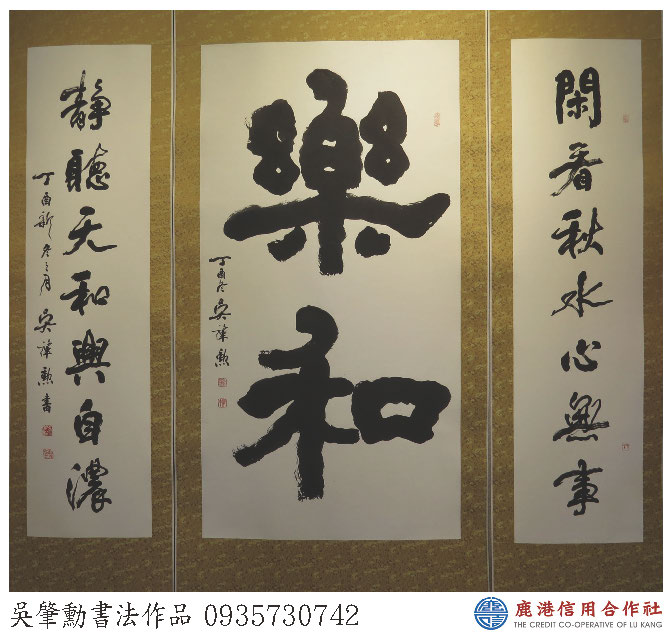 閑看秋水心無事
樂和
丁酉冬吳肇勳
靜聽天和興自濃
丁酉新冬之月吳肇勳書
吳肇勳書法作品 0935730742
鹿港信用合作社
THE CREDIT CO-OPERATIVE OF LU KANG